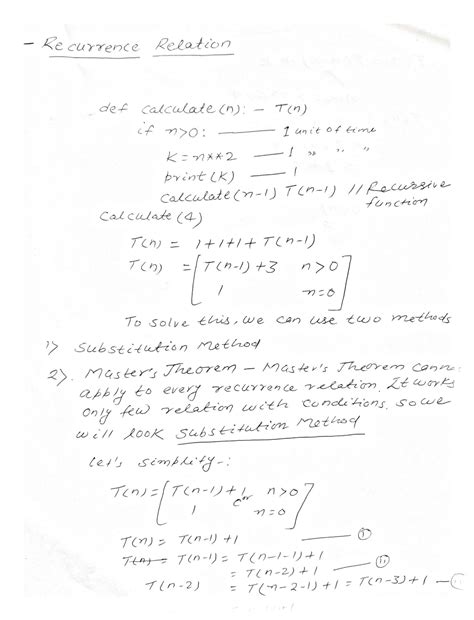 - Recurrence Relation
def calculate(n): - T(n)
if n>0: —— 1 unit of time
K = n**2 —— 1 " " "
print(K) —— 1
calculate(n-1) T(n-1) // Recursive
function
Calculate(4)
T(n) = 1+1+1+T(n-1)
T(n) = [T(n-1)+3 n>0
1 n=0]
To solve this, we can use two methods
1> Substitution Method
2>. Master's Theorem - Master's Theorem cann
apply to every recurrence relation. It works
only few relation with conditions. so we
will look Substitution Method
let's simplify-:
T(n) = [T(n-1)+1 or n>0
1 n=0]
T(n) = T(n-1)+1 —— (i)
T(n) = T(n-1) = T(n-1-1)+1
= T(n-2)+1 —— (ii)
T(n-2) = T(n-2-1)+1 = T(n-3)+1 —